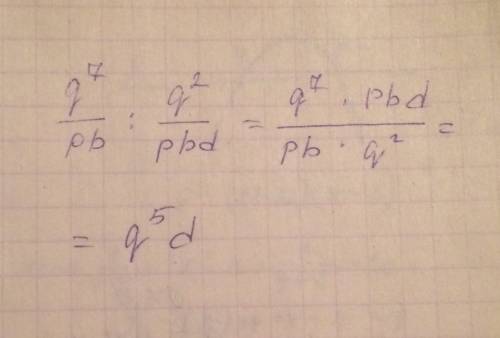 q⁷/pb : q²/pbd = q⁷ · pbd / pb · q² =
= q⁵d